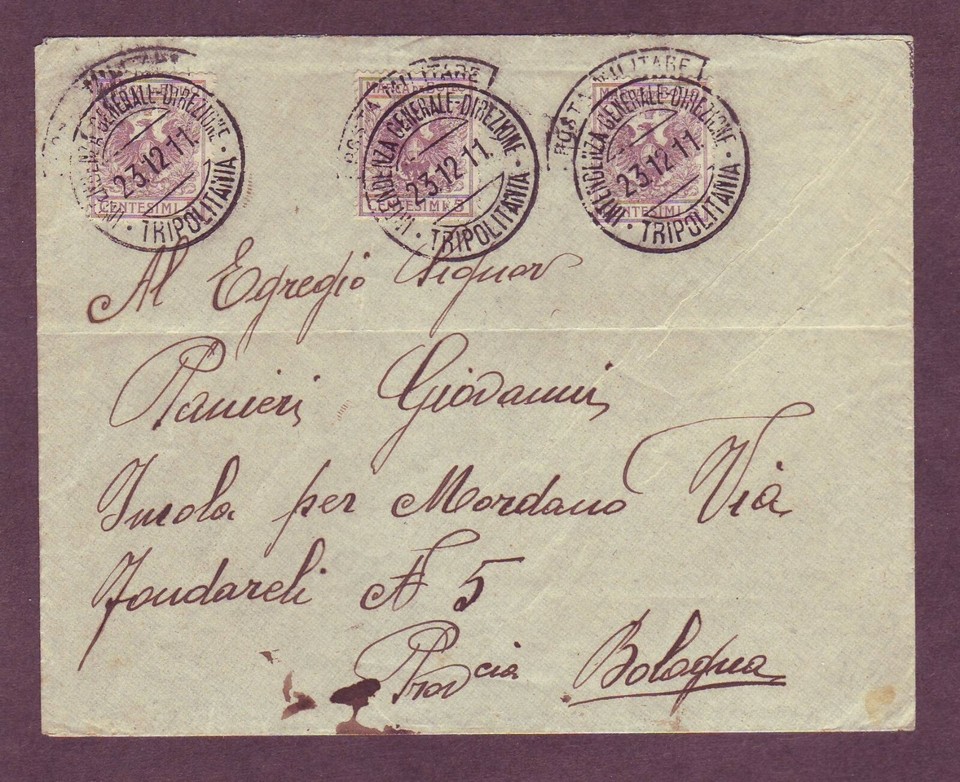 POSTA MILITARE
INTENDENZA GENERALE-DIREZIONE · TRIPOLITANIA ·
23.12.11.
CENTESIMI
POSTA MILITARE
INTENDENZA GENERALE-DIREZIONE · TRIPOLITANIA ·
23.12.11.
CENTESIMI 5
POSTA MILITARE
INTENDENZA GENERALE-DIREZIONE · TRIPOLITANIA ·
23.12.11.
CENTESIMI
Al Egregio Signor
Ranieri Giovanni
Imola per Mordano Via
Fondareli N 5
Provcia Bologna